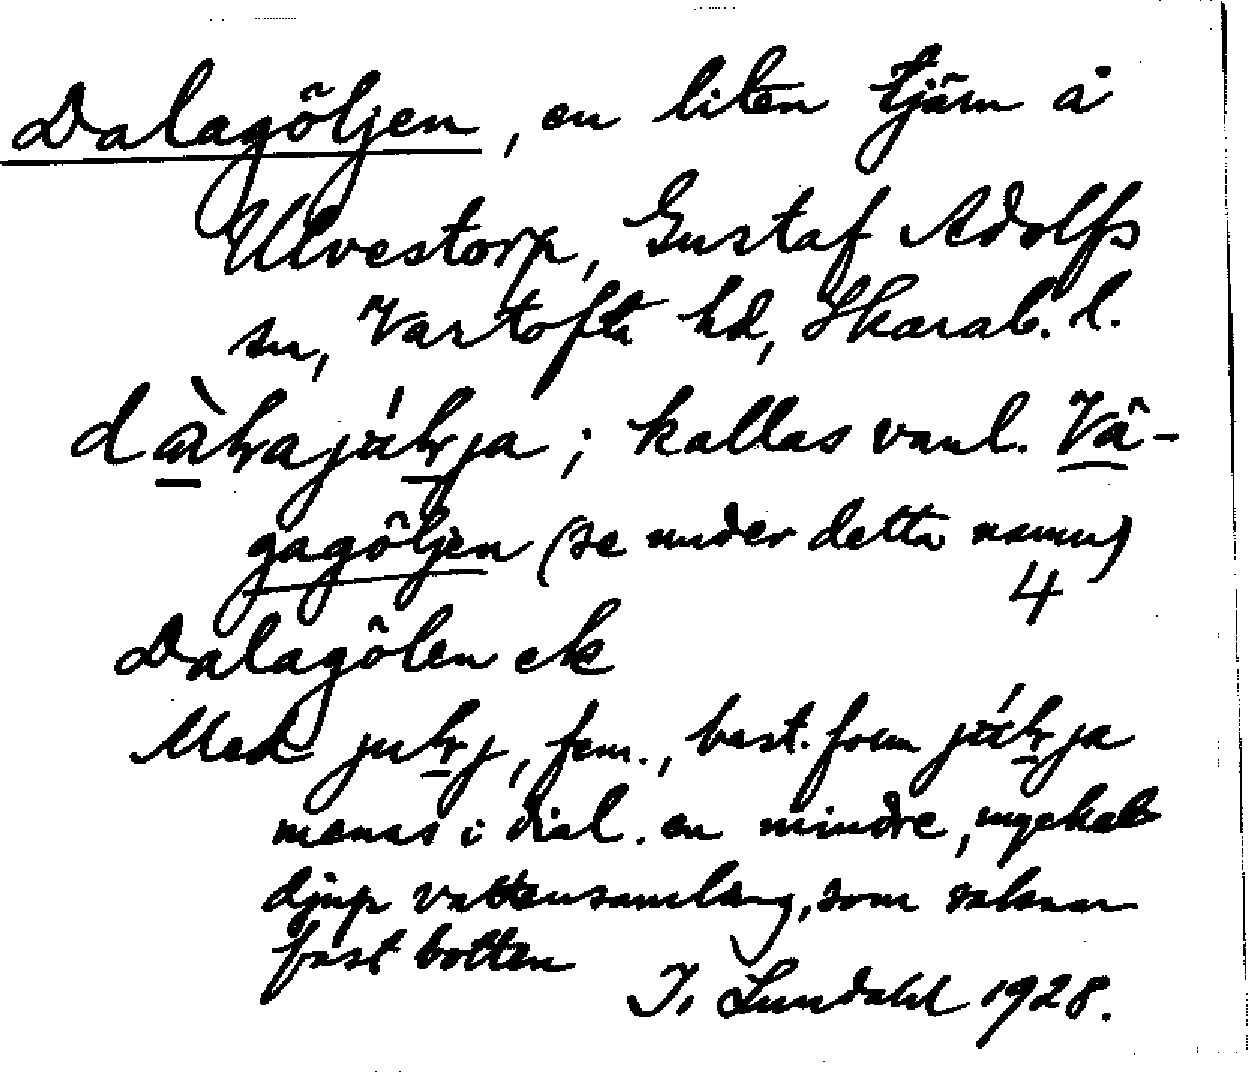 Dalagöljen, en liten tjärn å
Ulvestorp, Gustaf Adolfs
sn, Vartofta hd, Skarab. l.
kallas vanl. Vå-
gagöljen (se under detta namn)
4
Dalagölen ek
Med fem., best. form
menas i dial. en mindre, mycket
djup vattensamling, som saknar
fast botten
I. Lundahl 1928.